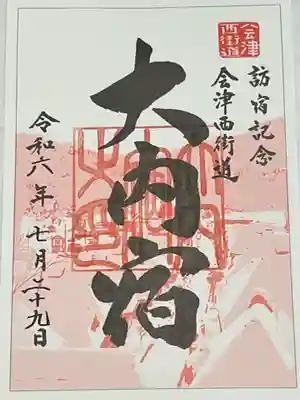 会津
西街道
訪宿記念
会津西街道
大内宿
令和六年 七月二十九日